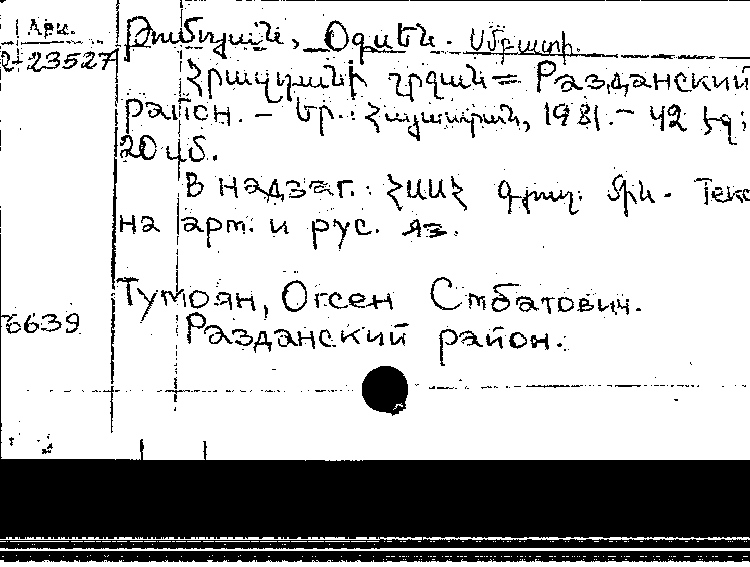 Арм.
Թումոյան, Օգսեն. Սմբատի.
2-23527
Հրազդանի շրջան = Разданский
район. - Եր.: Հայաստան, 1981. - 42 էջ;
20 սմ.
В надзаг.: ՀՍՍՀ
на арм. и рус. яз.
Тумоян, Огсен Смбатович.
6639
Разданский район.